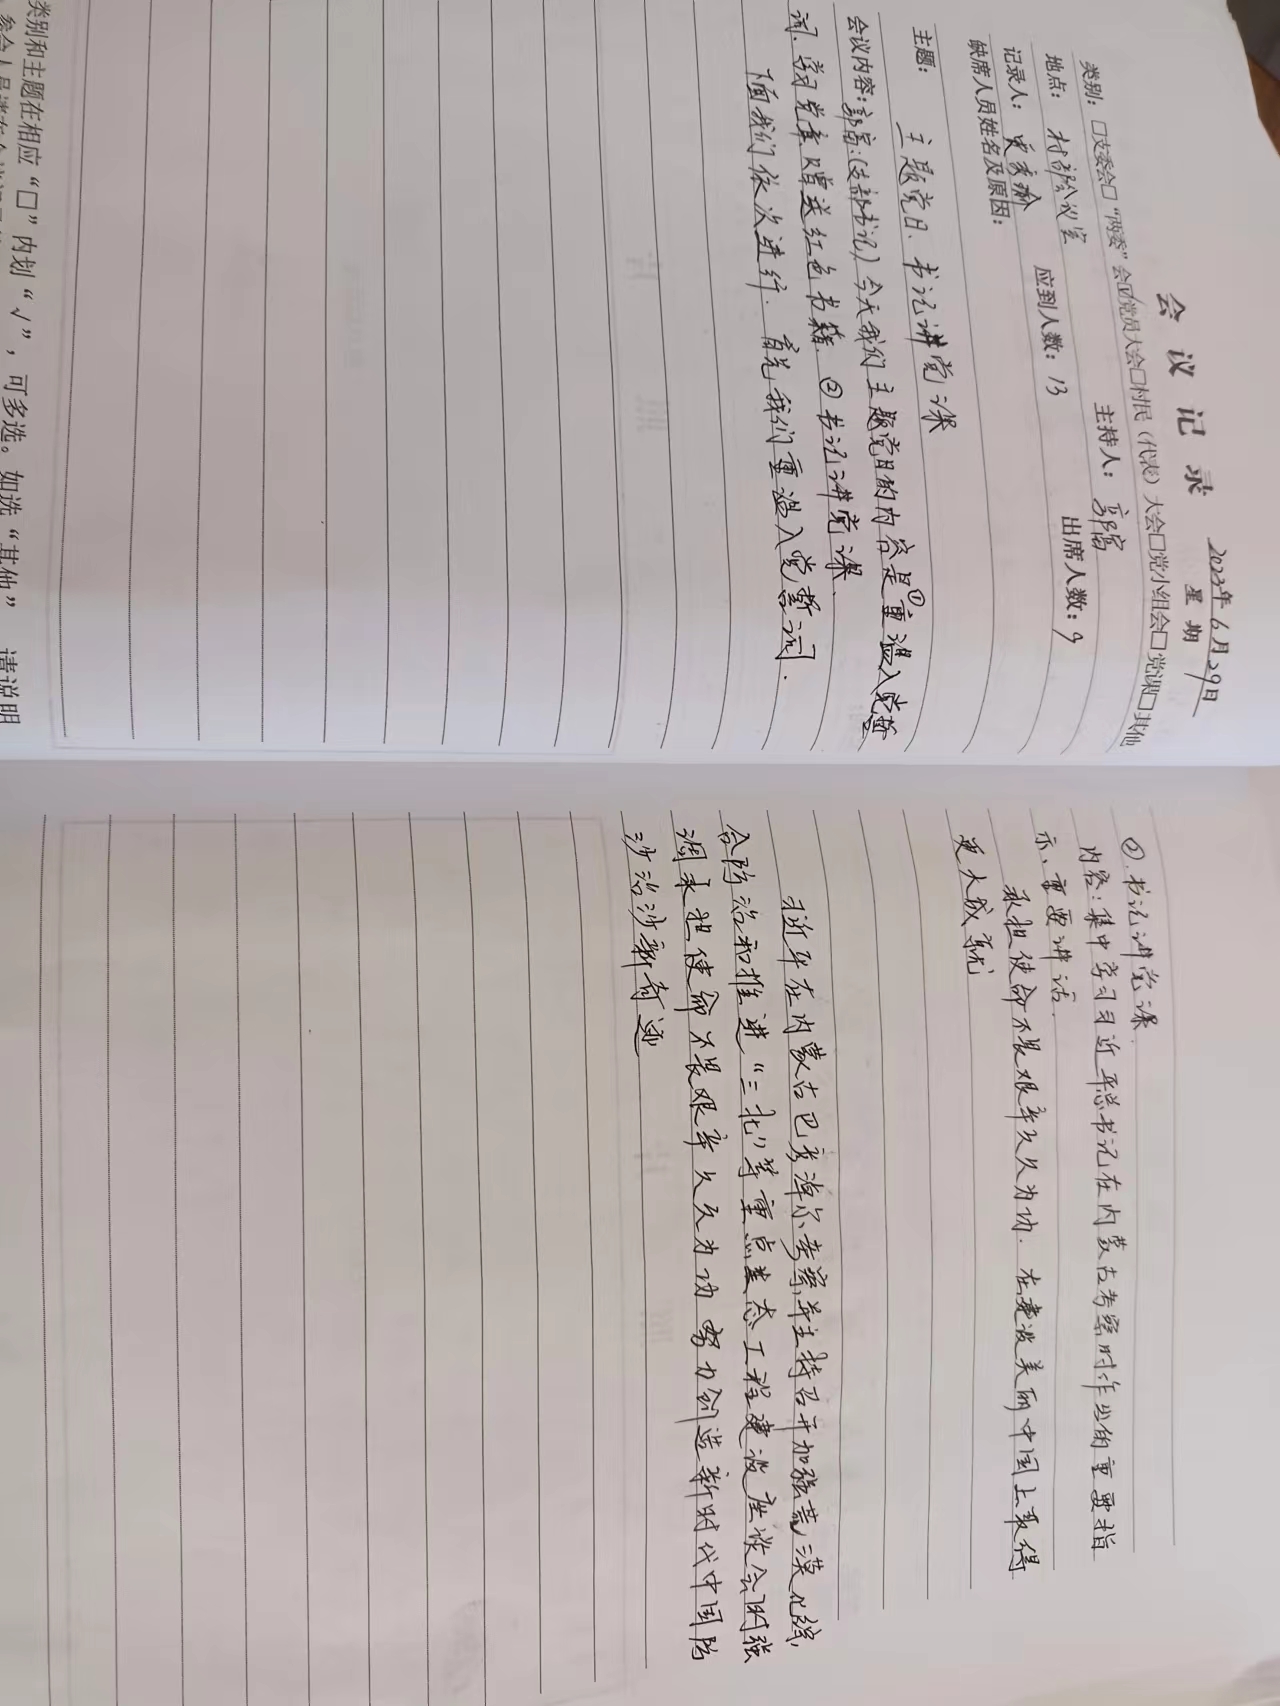 会议记录
2023年6月29日
星期
类别：□支委会□“两委”会☑党员大会□村民（代表）大会□党小组会□党课□其他
地点：村部会议室 主持人：郭富
记录人： 应到人数：13 出席人数：9
缺席人员姓名及原因：
主题： 主题党日、书记讲党课
会议内容：郭富：（支部书记）今天我们主题党日的内容是①重温入党誓
词、学习党章赠送红色书籍、②书记讲党课、
下面我们依次进行．首先我们重温入党誓词．
类别和主题在相应“□”内划“√”，可多选。如选“其他” 请说明
②．书记讲党课．
内容：集中学习习近平总书记在内蒙古考察时作出的重要指
示、重要讲话．
承担使命不畏艰辛久久为功．在建设美丽中国上取得
更大成就
习近平在内蒙古巴彦淖尔考察并主持召开加强荒漠化综
合防治和推进“三北”等重点生态工程建设座谈会时强
调承担使命不畏艰辛久久为功努力创造新时代中国防
沙治沙新奇迹